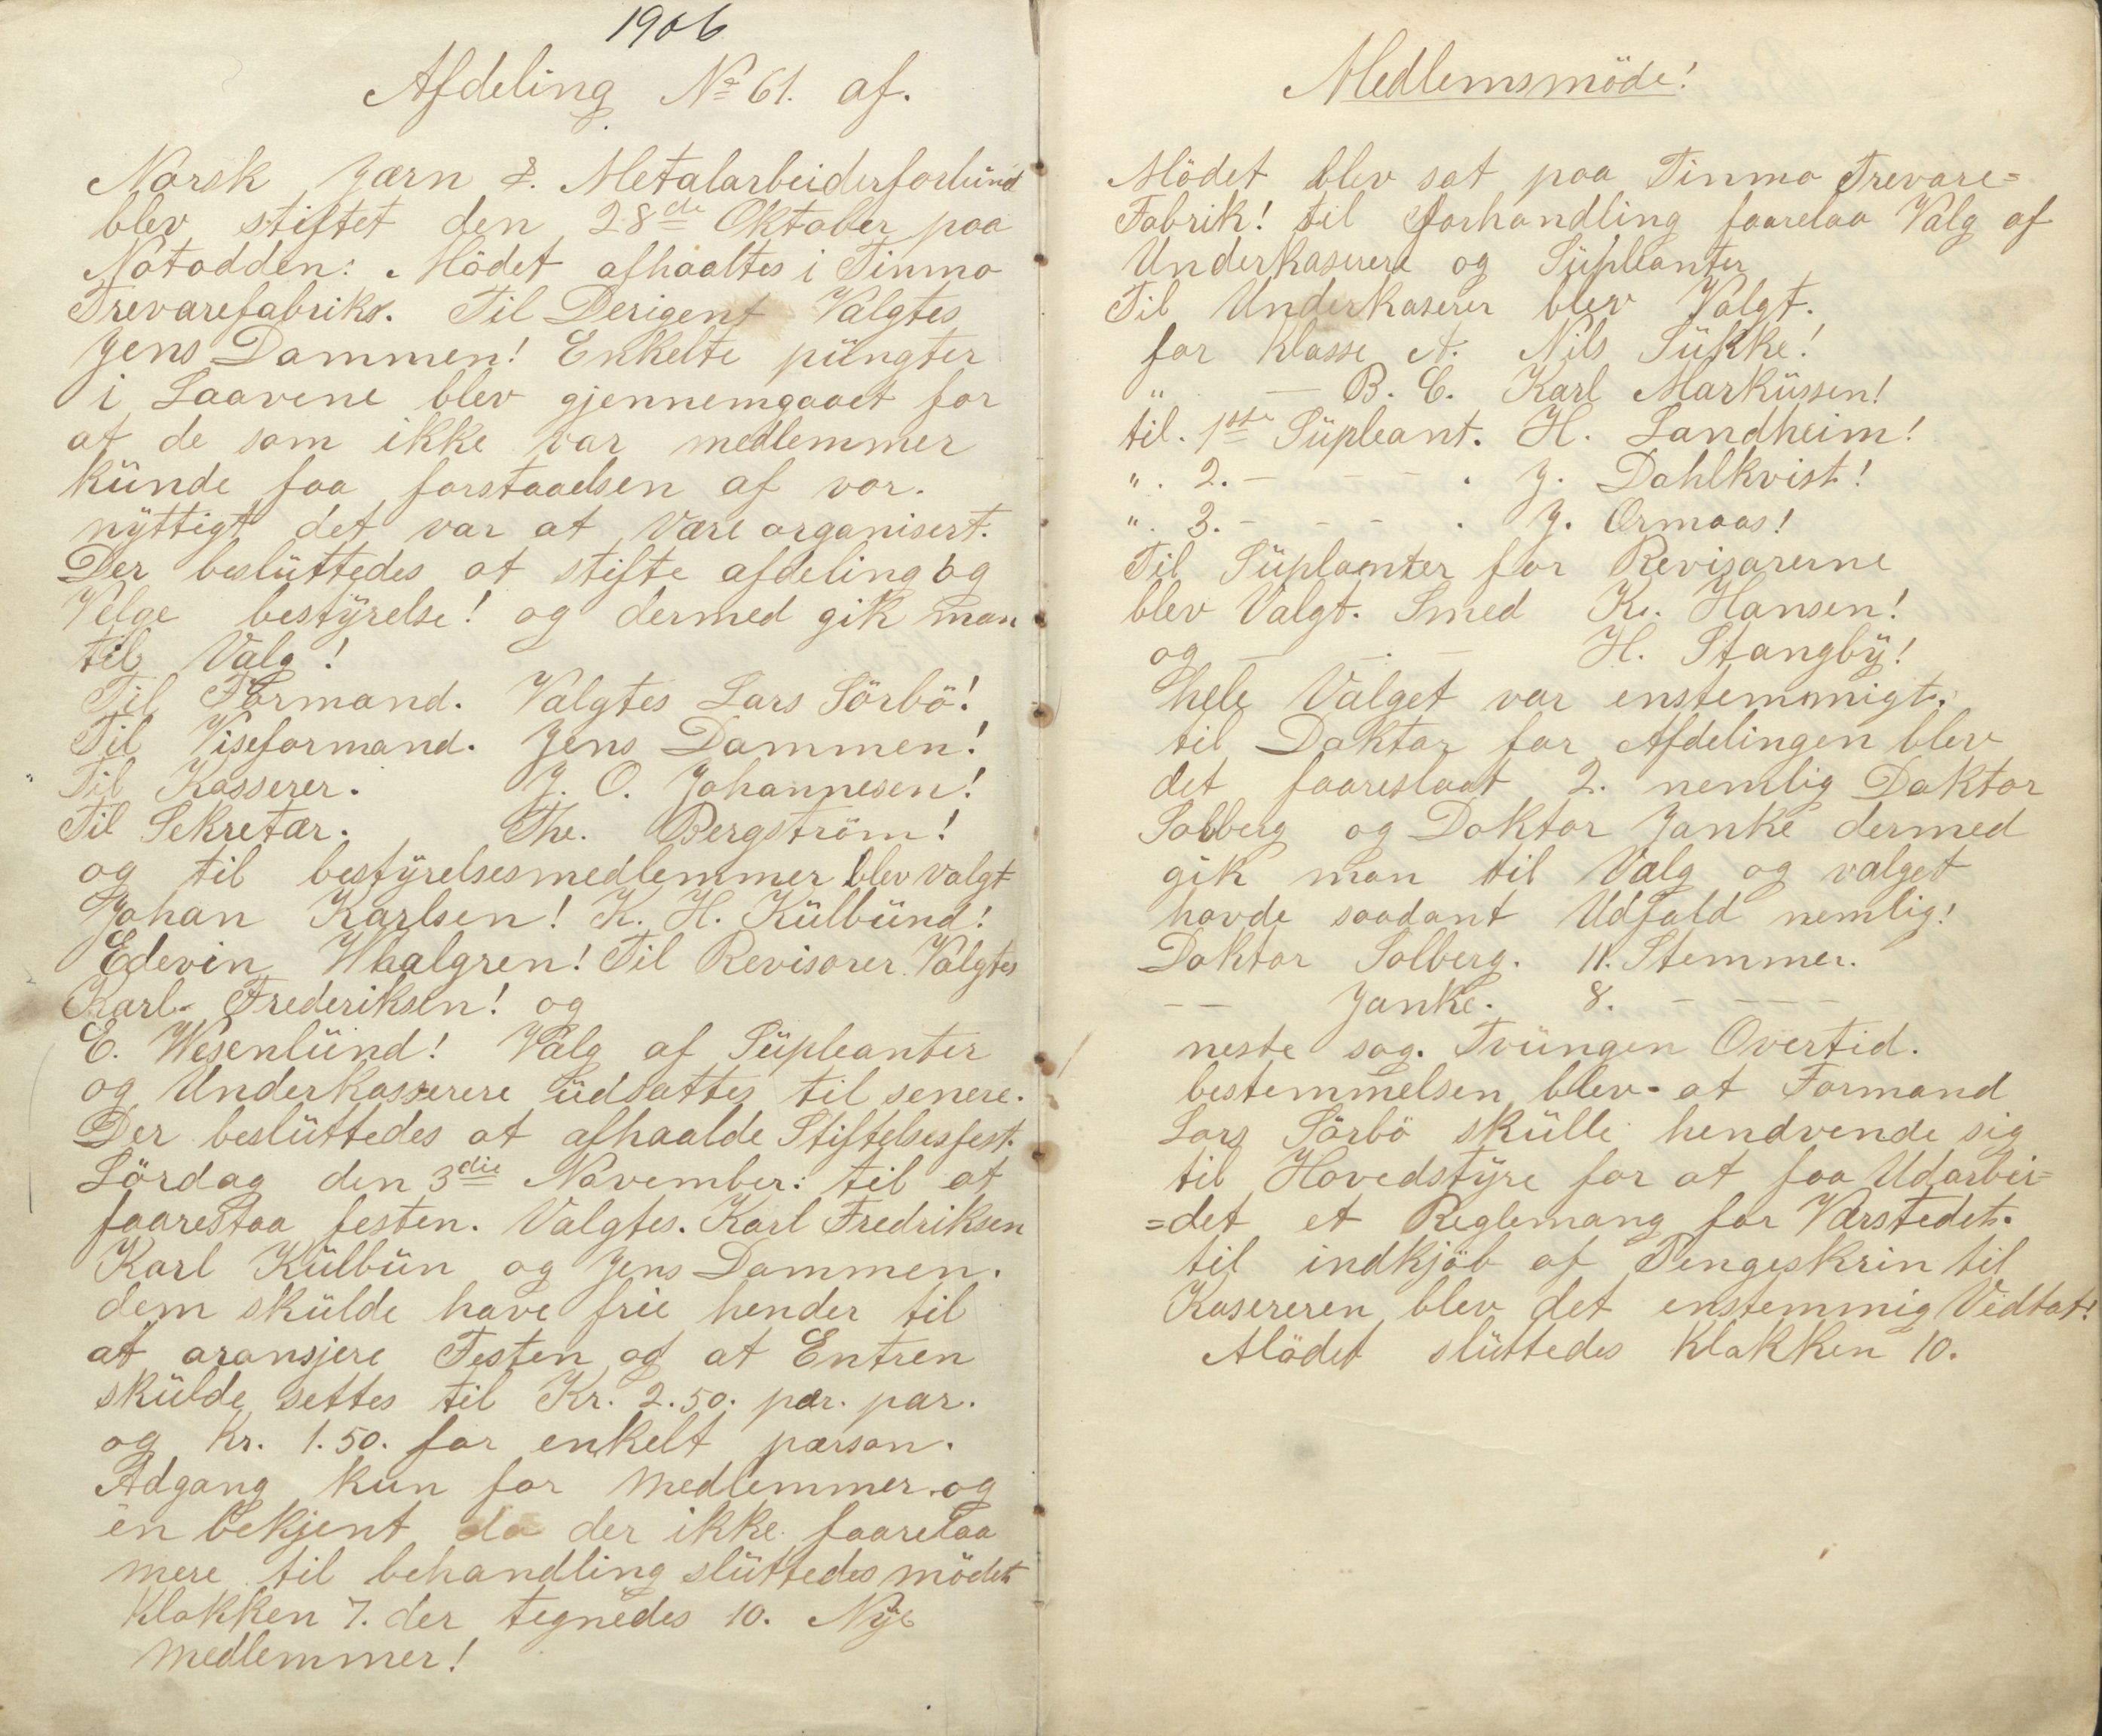 1906
Afdeling No 61. af.
Norsk Jærn &. Metalarbeiderforbund
blev stiftet den 28de Oktober paa
Notodden: Mödet afhaaltes i Tinmo
Trevarefabriks. Til Derigent Valgtes
Jens Dammen! Enkelte püngter
i Laavene blev gjennemgaaet for
at de som ikke var medlemmer
künde faa forstaaelsen af vor.
nÿttigt det var at være organisert.
Der beslüttedes at stifte afdeling og
Velge bestÿrelse! og dermed gik man
til Valg!
Til Formand. Valgtes Lars Sörbö!
Til Viseformand. Jens Dammen!
Til Kasserer. J. O. Johannesen!
Til Sekretær. The. Bergström!
og til bestÿrelsesmedlemmer blev valgt
Johan Karlsen! K. H. Külbünd!
Edevin Whalgren! Til Revisorer Valgtes
Karl Frederiksen! og
E. Wesenlünd! Valg af Süpleanter
og Underkasserere üdsattes til senere.
Der beslüttedes at afhaalde Stiftelsesfest.
Lördag den 3die November: til at
faarestaa festen. Valgtes. Karl Fredriksen
Karl Külbün og Jens Dammen.
dem skülde have frie hender til
at aransjere Festen og at Entren
skülde settes til Kr. 2.50. pær. par.
og Kr. 1.50. for enkelt pærson.
Adgang kun for Medlemmer og
en bekjent da der ikke faarelaa
mere til behandling slüttedes mödet
Klokken 7. der tegnedes 10. Nÿe
Medlemmer!
Medlemsmöde!
Mödet blev sat paa Tinmo Trevare=
Fabrik! til forhandling faarelaa Valg af
Underkaserere og Süpleanter
Til Underkaserer blev Valgt.
for Klasse A. Nils Sükke!
" — B. C. Karl Marküssen!
til. 1ste Süpleant. H. Landheim!
". 2. - - - . J. Dahlkvist!
". 3. - - - . J. Ormaas!
Til Süplanter for Revisorerne
blev Valgt. Smed Kr. Hansen!
og — — . — H. Stangbÿ!
hele Valget var enstemmigt.
til Doktor for Afdelingen blev
det faareslaat 2. nemlig Doktor
Solberg og Doktor Janke dermed
gik man til Valg og valget
havde saadant Udfald nemlig!
Doktor Solberg. 11. Stemmer.
— — Janke. 8. — — — —
neste sag. Tvüngen Overtid.
bestemmelsen blev. at Formand
Lars Sörbö skülle hendvende sig
til Hovedstÿre for at faa Udarbei=
=det et Reglemang for Værstedet.
til indkjöb af Pengeskrin til
Kasereren blev det enstemmig Vedtat!
Mödet slüttedes Klokken 10.